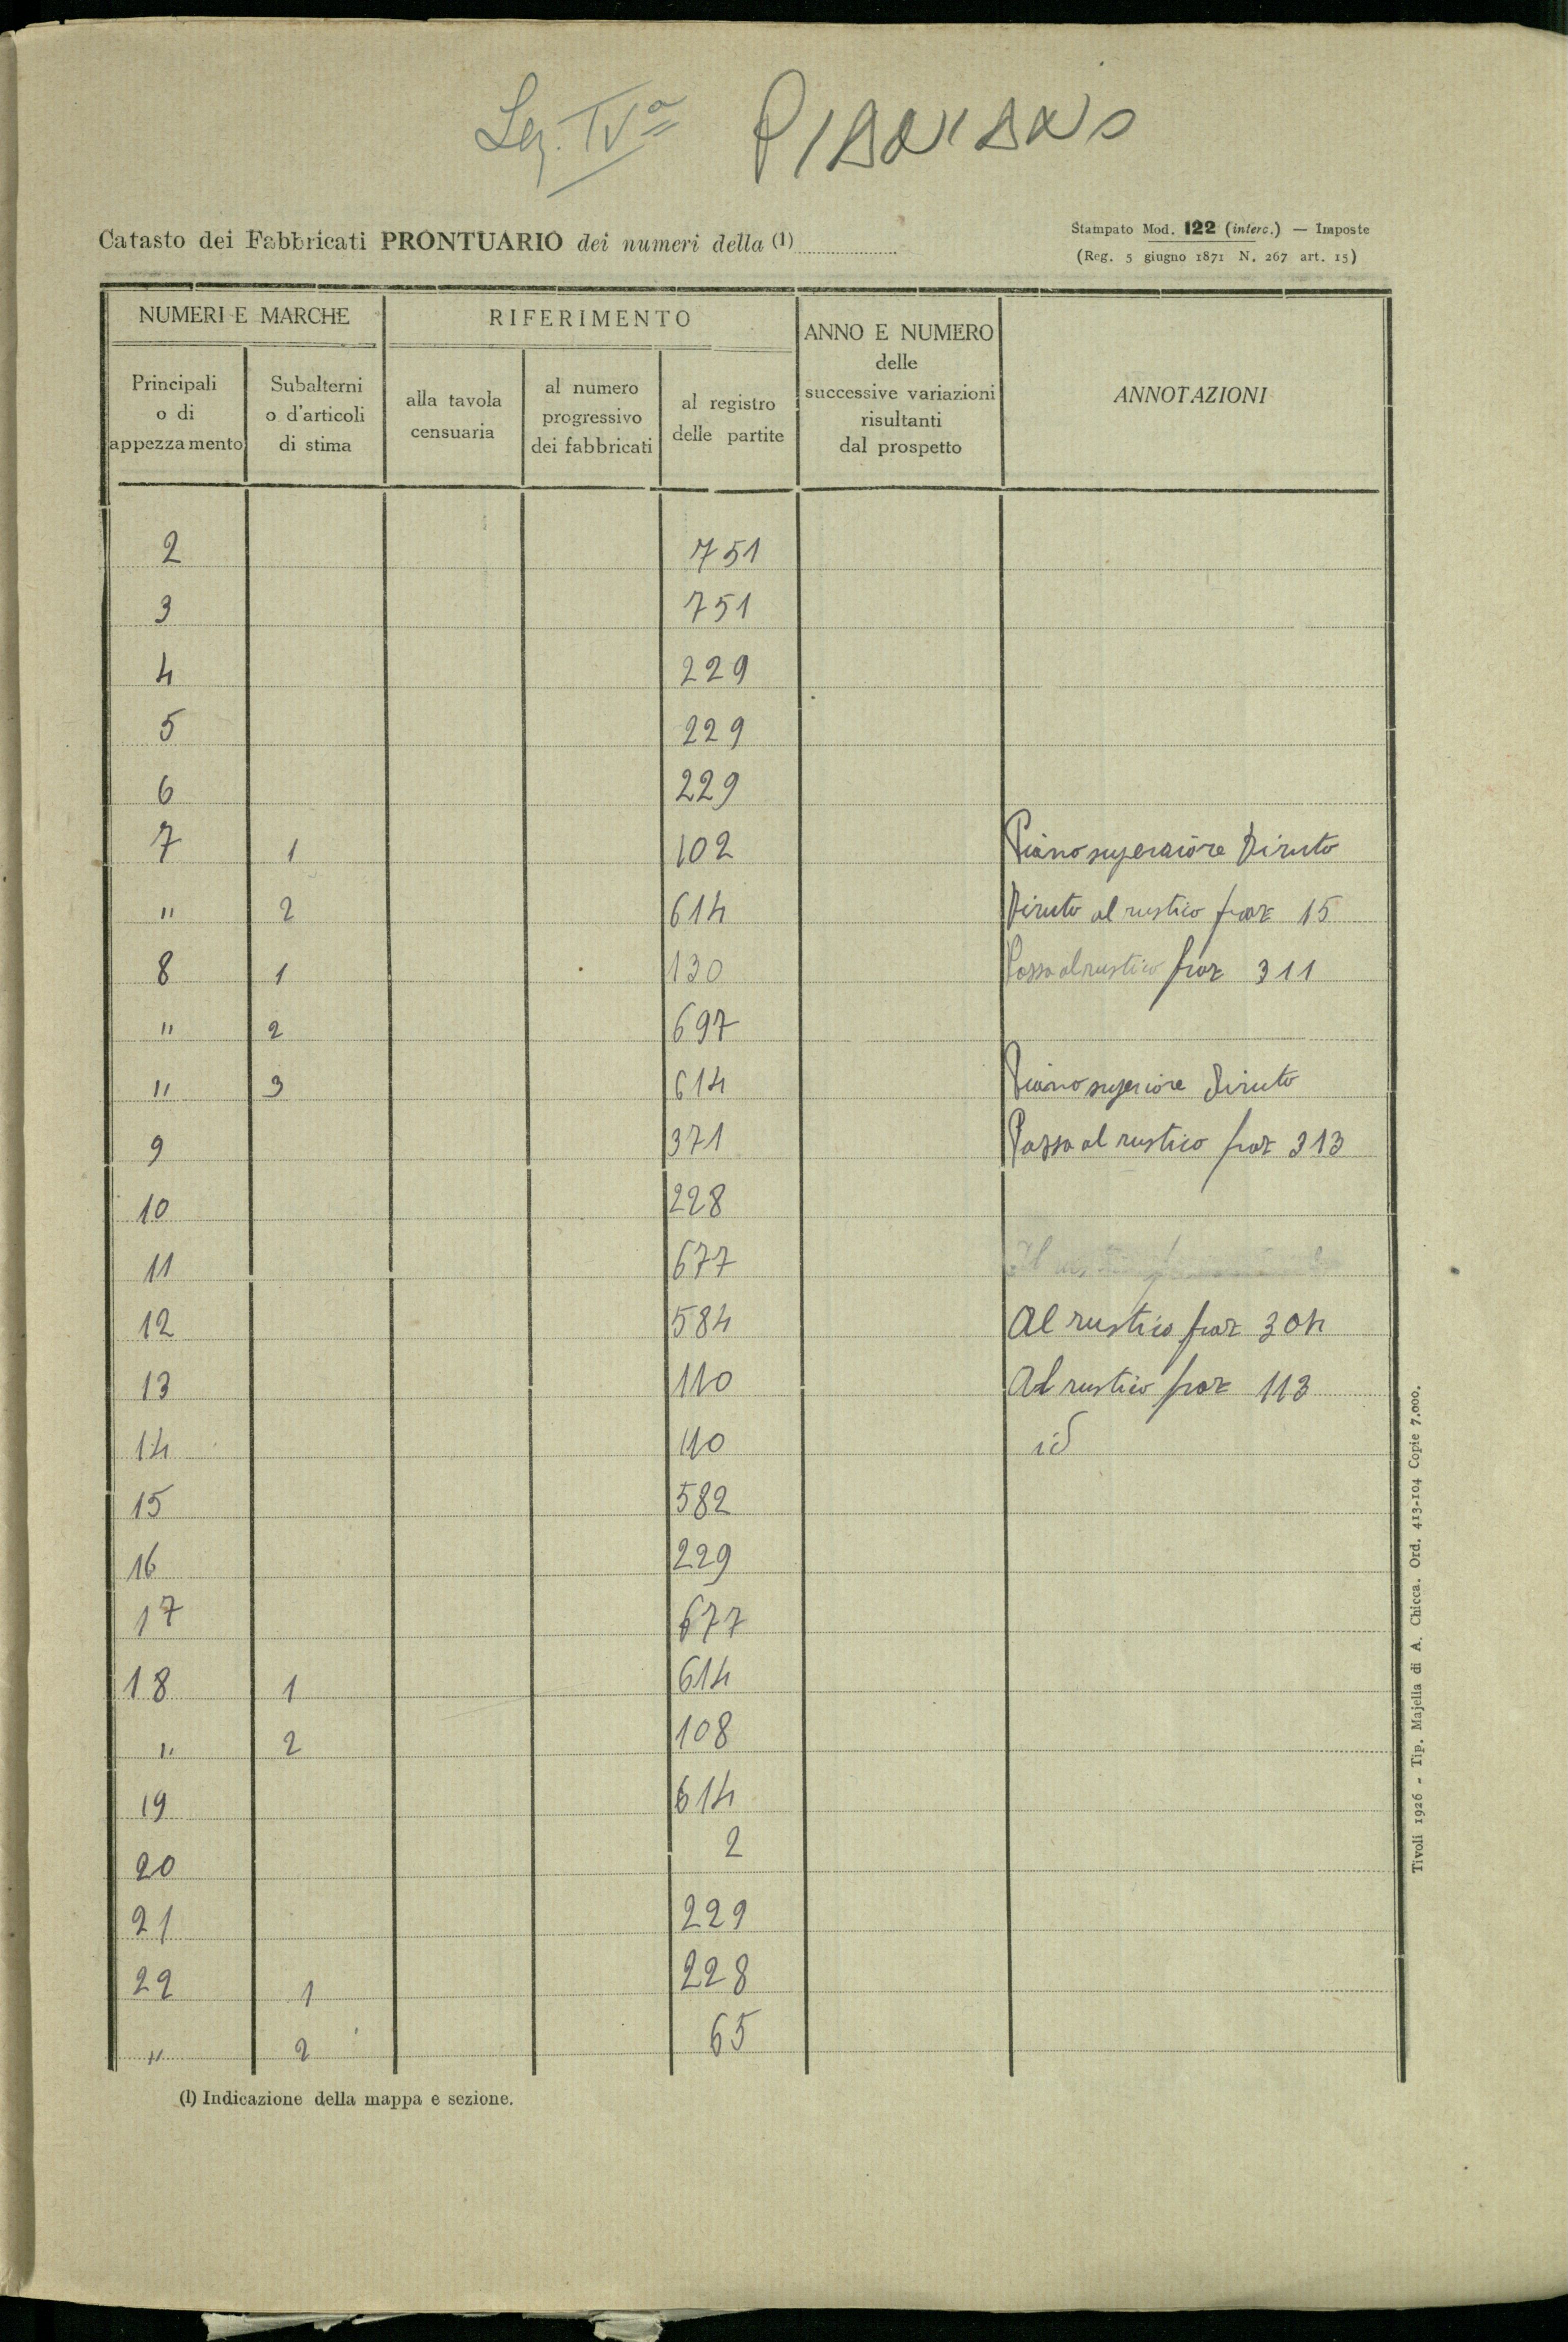 Sez. IVª PISONIANO
Catasto dei Fabbricati PRONTUARIO dei numeri della (1)
Stampato Mod. 122 (interc.) — Imposte
(Reg. 5 giugno 1871 N. 267 art. 15)
NUMERI E MARCHE
RIFERIMENTO
ANNO E NUMERO
delle
successive variazioni
risultanti
dal prospetto
ANNOTAZIONI
Principali
o di
appezzamento
Subalterni
o d'articoli
di stima
alla tavola
censuaria
al numero
progressivo
dei fabbricati
al registro
delle partite
2 751
3 751
4 229
5 229
6 229
7 1 102 Piano superiore Diruto
" 2 614 Diruto al rustico 15
8 1 130 Passa al rustico 311
" 2 697
" 3 614 Piano superiore Diruto
9 371 Passa al rustico 313
10 228
11 677
12 584 Al rustico 304
13 110 Al rustico 113
14 110 id
15 582
16 229
17 677
18 1 614
" 2 108
19 614
20 2
21 229
22 1 228
" 2 65
(1) Indicazione della mappa e sezione.
Tivoli 1926 - Tip. Majella di A. Chicca. Ord. 413-104 Copie 7.000.